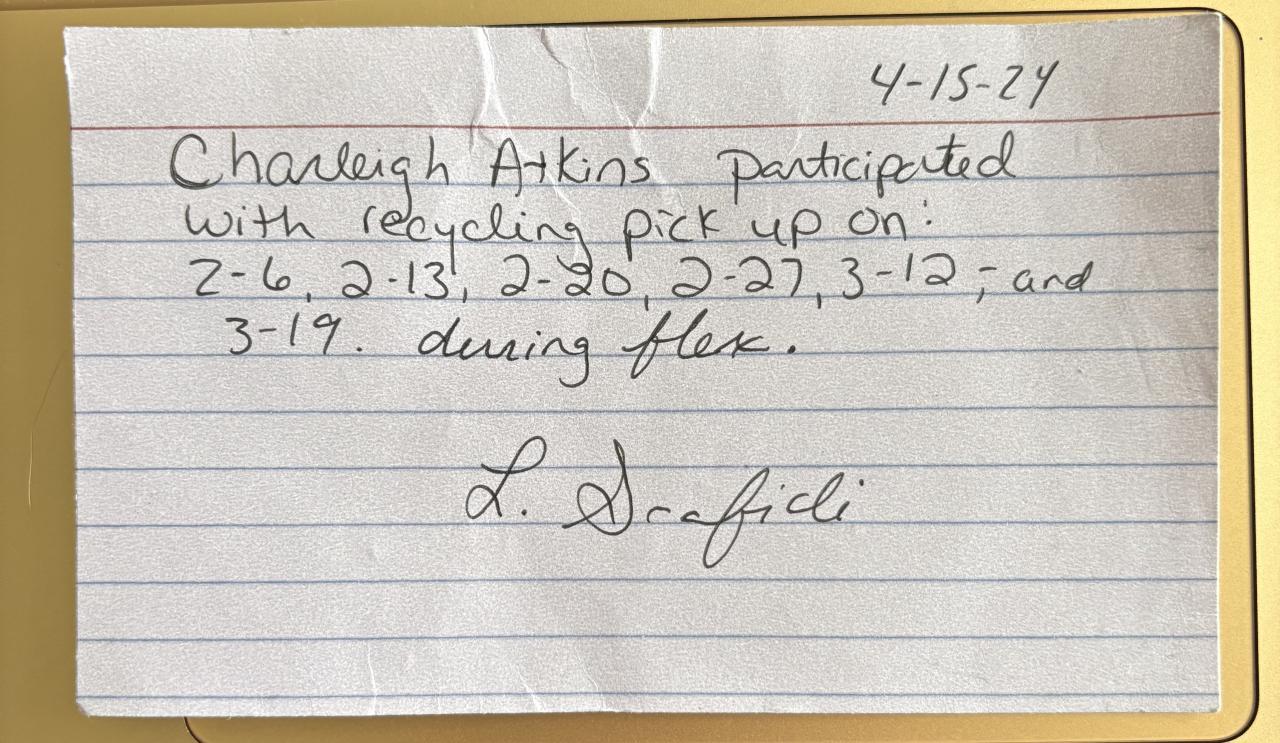 4-15-24
Charleigh Atkins participated
with recycling pick up on:
2-6, 2-13, 2-20, 2-27, 3-12, and
3-19. during flex.
L. Scaficli